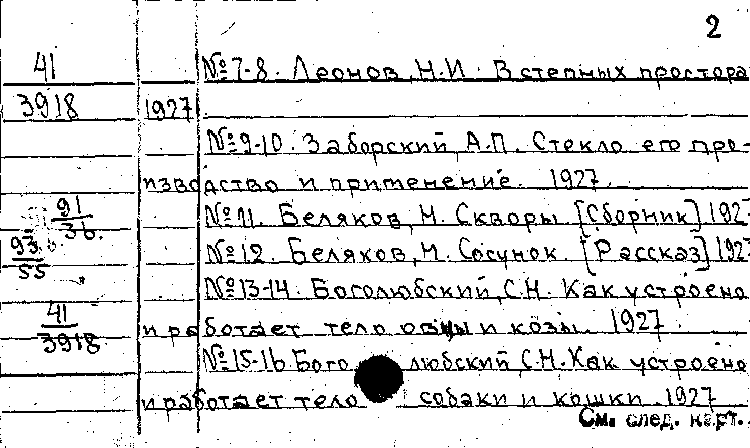 2
41 №7-8. Леонов, Н.И. В степных простора
3918 1927
№9-10. Заборский, А.П. Стекло его про-
изводство и применение. 1927.
91/36. №11. Беляков, М. Скворы [Сборник] 192
93.6./55 №12. Беляков, М. Сосунок. [Рассказ] 192
№13-14. Боголюбский, С.Н. Как устроено
41/3918 и работает тело овцы и козы. 1927.
№15-16 Боголюбский, С.Н. Как устроено
и работает тело собаки и кошки. 1927
См. след. карт.